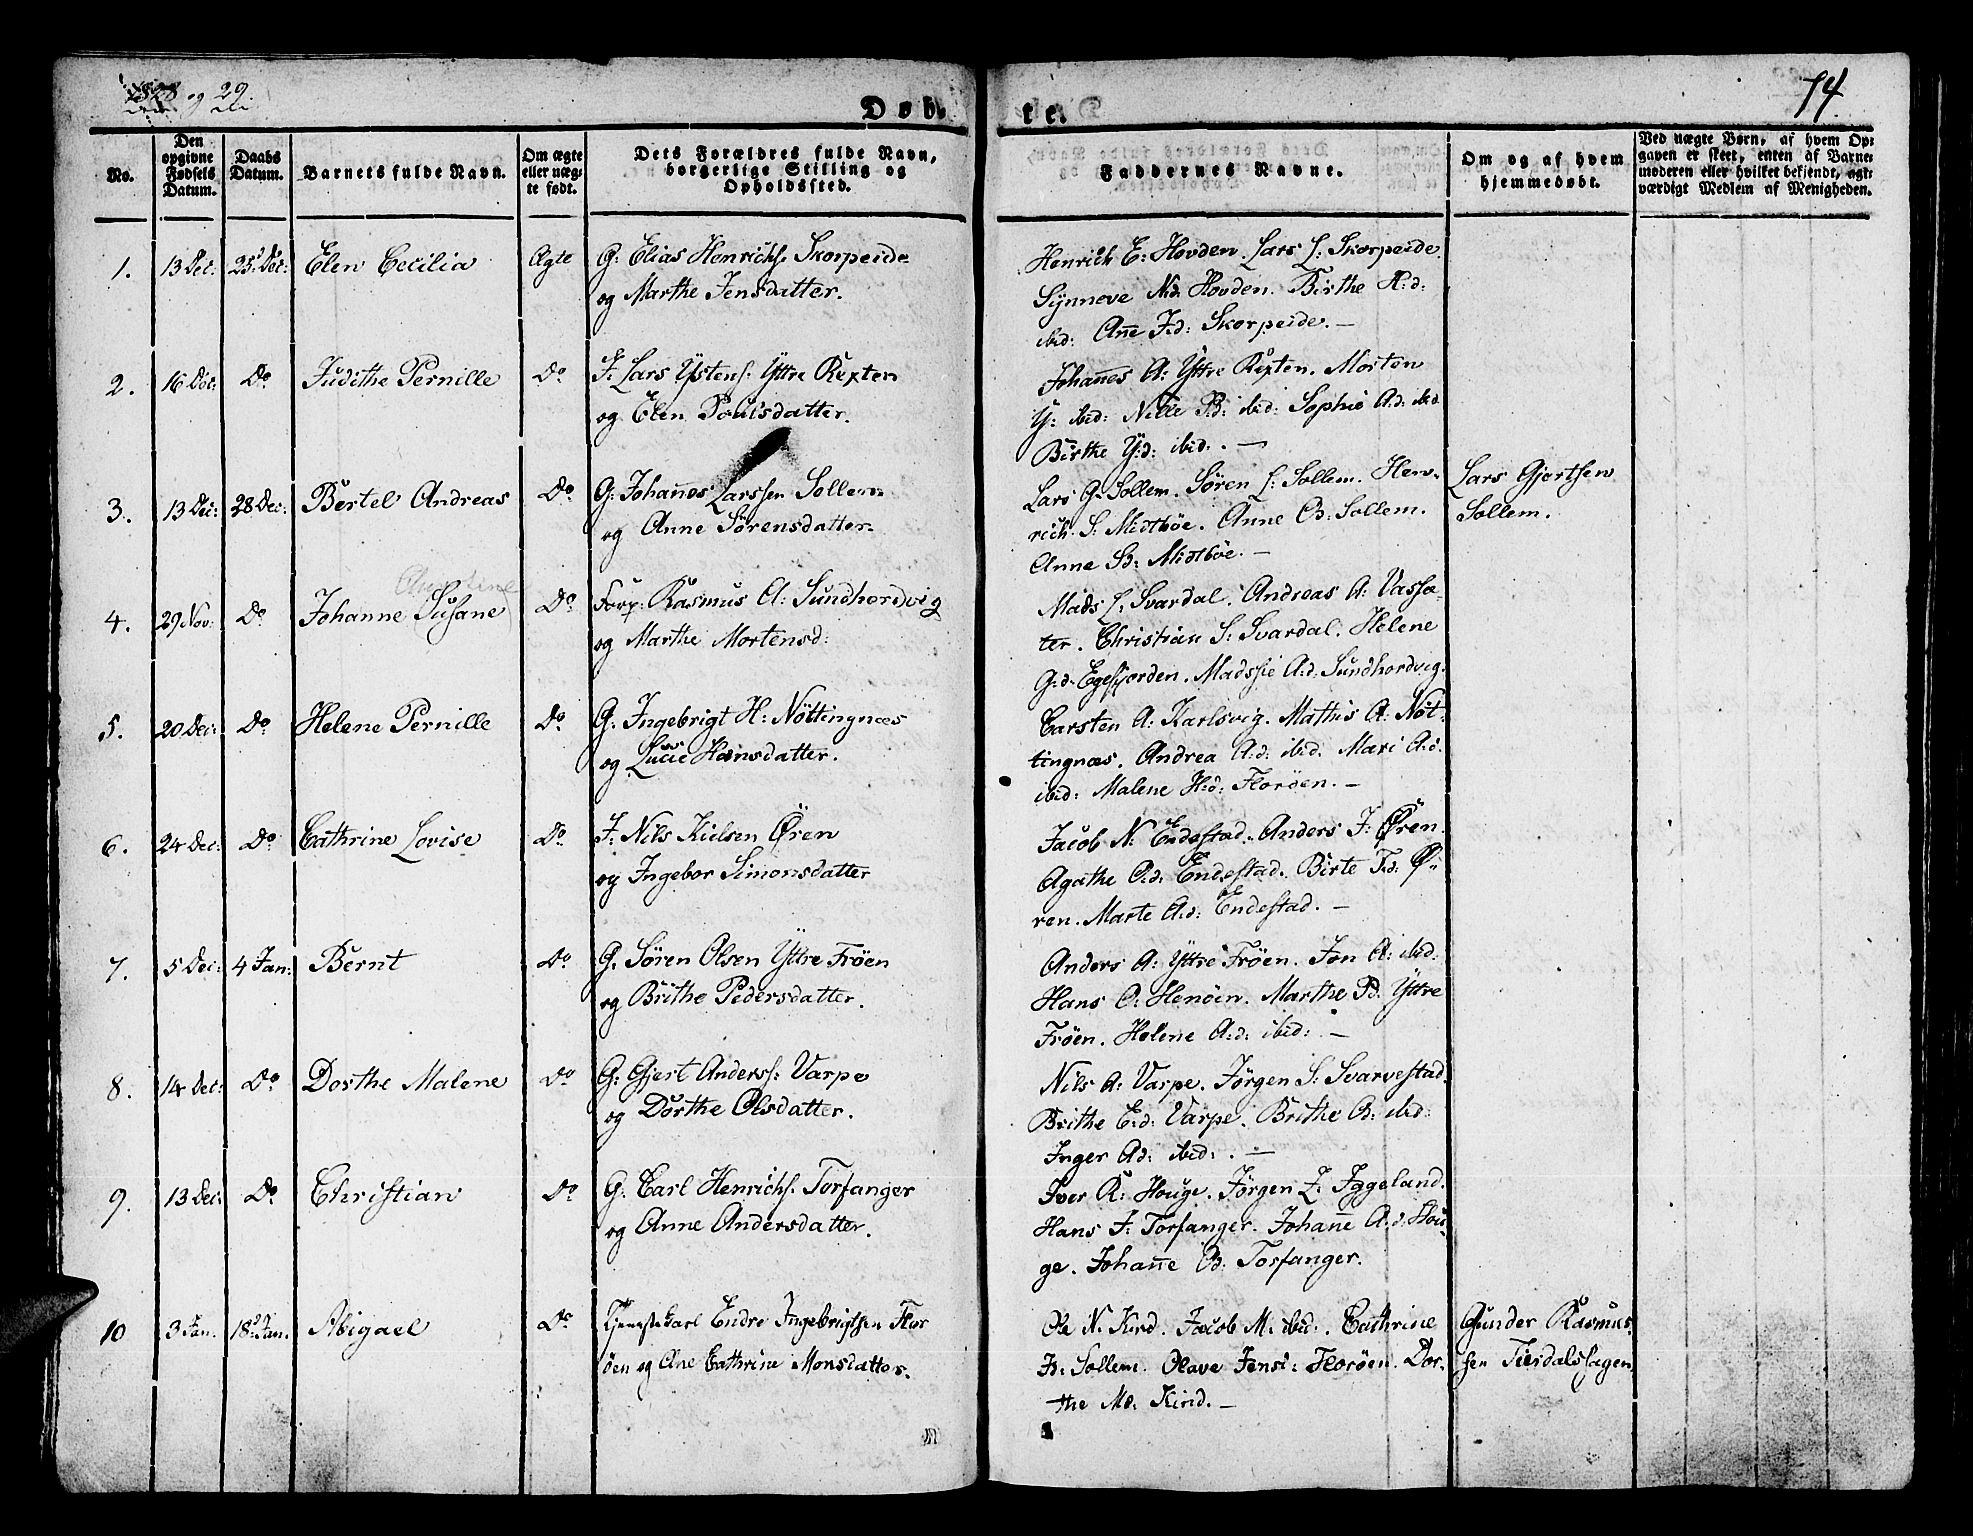 1828 og 29.
Døb-
te.
74.
No.
Den opgivne Fødsels Datum.
Daabs Datum.
Barnets fulde Navn.
Om ægte eller uægte født.
Dets Forældres fulde Navn, borgerlige Stilling og Opholdssted.
Faddernes Navne.
Om og af hvem hjemmedøbt.
Ved uægte Børn, af hvem Opgaven er skeet, enten af Barnemoderen eller hvilket bekjendt, agtværdigt Medlem af Menigheden.
1. 13 Dec: 25 Dec: Elen Cecilia Ægte G: Elias Henrichs. Skorpeide
og Marthe Jensdatter.
Henrich E: Hovden. Lars L: Skorpeide.
Synneve N.d: Hovden. Birthe H:d:
ibid: Añe J:d: Skorpeide. —
2. 16 Dec: Do Judithe Pernille Do J: Lars Ystens. Yttre Rixten
og Elen Poulsdatter.
Johañes A: Yttre Rixten. Morten
Y: ibid: Nille P:d: ibid: Sophie A:d: ibid
Birthe Y:d: ibid: . —
3. 13 Dec: 28 Dec: Bertel Andreas Do G: Johañes Larssen Sollem
og Anne Sörensdatter.
Lars G: Sollem. Sören L: Sollem. Hen-
rich S: Midtböe. Anne O: Sollem.
Anne S: Midtböe. —
Lars Gjertsen
Sollem.
4. 29 Nov: Do Johanne Susane Do Forp: Rasmus A: Sundhordvig
og Marthe Mortensd:
Mads L. Svardal. Andreas A: Vasse-
ter. Christian S: Svardal. Helene
G:d: Egefjorden. Madssie A:d: Sundhordvig.
5. 20 Dec: Do Helene Pernille Do G: Ingebrigt H: Nöttingnæs
og Lucie Hansdatter.
Carsten A: Karlsvig. Mathis A: Nöt-
tingnæs. Andrea A:d: ibid. Mari A:d.
ibid: Malene H:d: Floröen. —
6. 24 Dec: Do Cathrine Lovise Do J: Nils Nielsen Ören
og Ingebor Simonsdatter
Jacob N: Endestad. Anders J: Ören.
Agathe O:d: Endestad. Birte J:d: Ö-
ren. Marte A:d: Endestad. —
7. 5 Dec: 4 Jan: Bernt Do G. Sören Olsen Yttre Fröen
og Brithe Pedersdatter.
Anders A: Yttre Fröen. Jon A: ibid.
Hans O: Henöen. Marthe P:d: Yttre
Fröen. Helene A:d: ibid: —
8. 14 Dec: Do Dorthe Malene Do G: Gjert Anders: Varpe
og Dorthe Olsdatter.
Nils A: Varpe. Jörgen S: Svarvestad.
Brithe E:d: Varpe. Brithe O: ibid:
Inger A:d: ibid: . —
9. 13 Dec: Do Christian Do G. Carl Henrichs. Torfanger
og Anne Andersdatter.
Iver R: Houge. Jörgen Z. Iggeland.
Hans J: Torfanger. Johañe A:d: Hou-
ge. Johañe O:d: Torfanger.
10 3 Jan. 18 Jan. Abigael Do Tjenestekarl Endre Ingebrigtsen Flor
öen og Ane Cathrine Monsdatter.
Ole N: Kind. Jacob M: ibid: . Cathrine
J:: Sollem. Olave Jensd: Floröen. Dor-
the M:: Kind. —
Gunder Rasmus-
sen